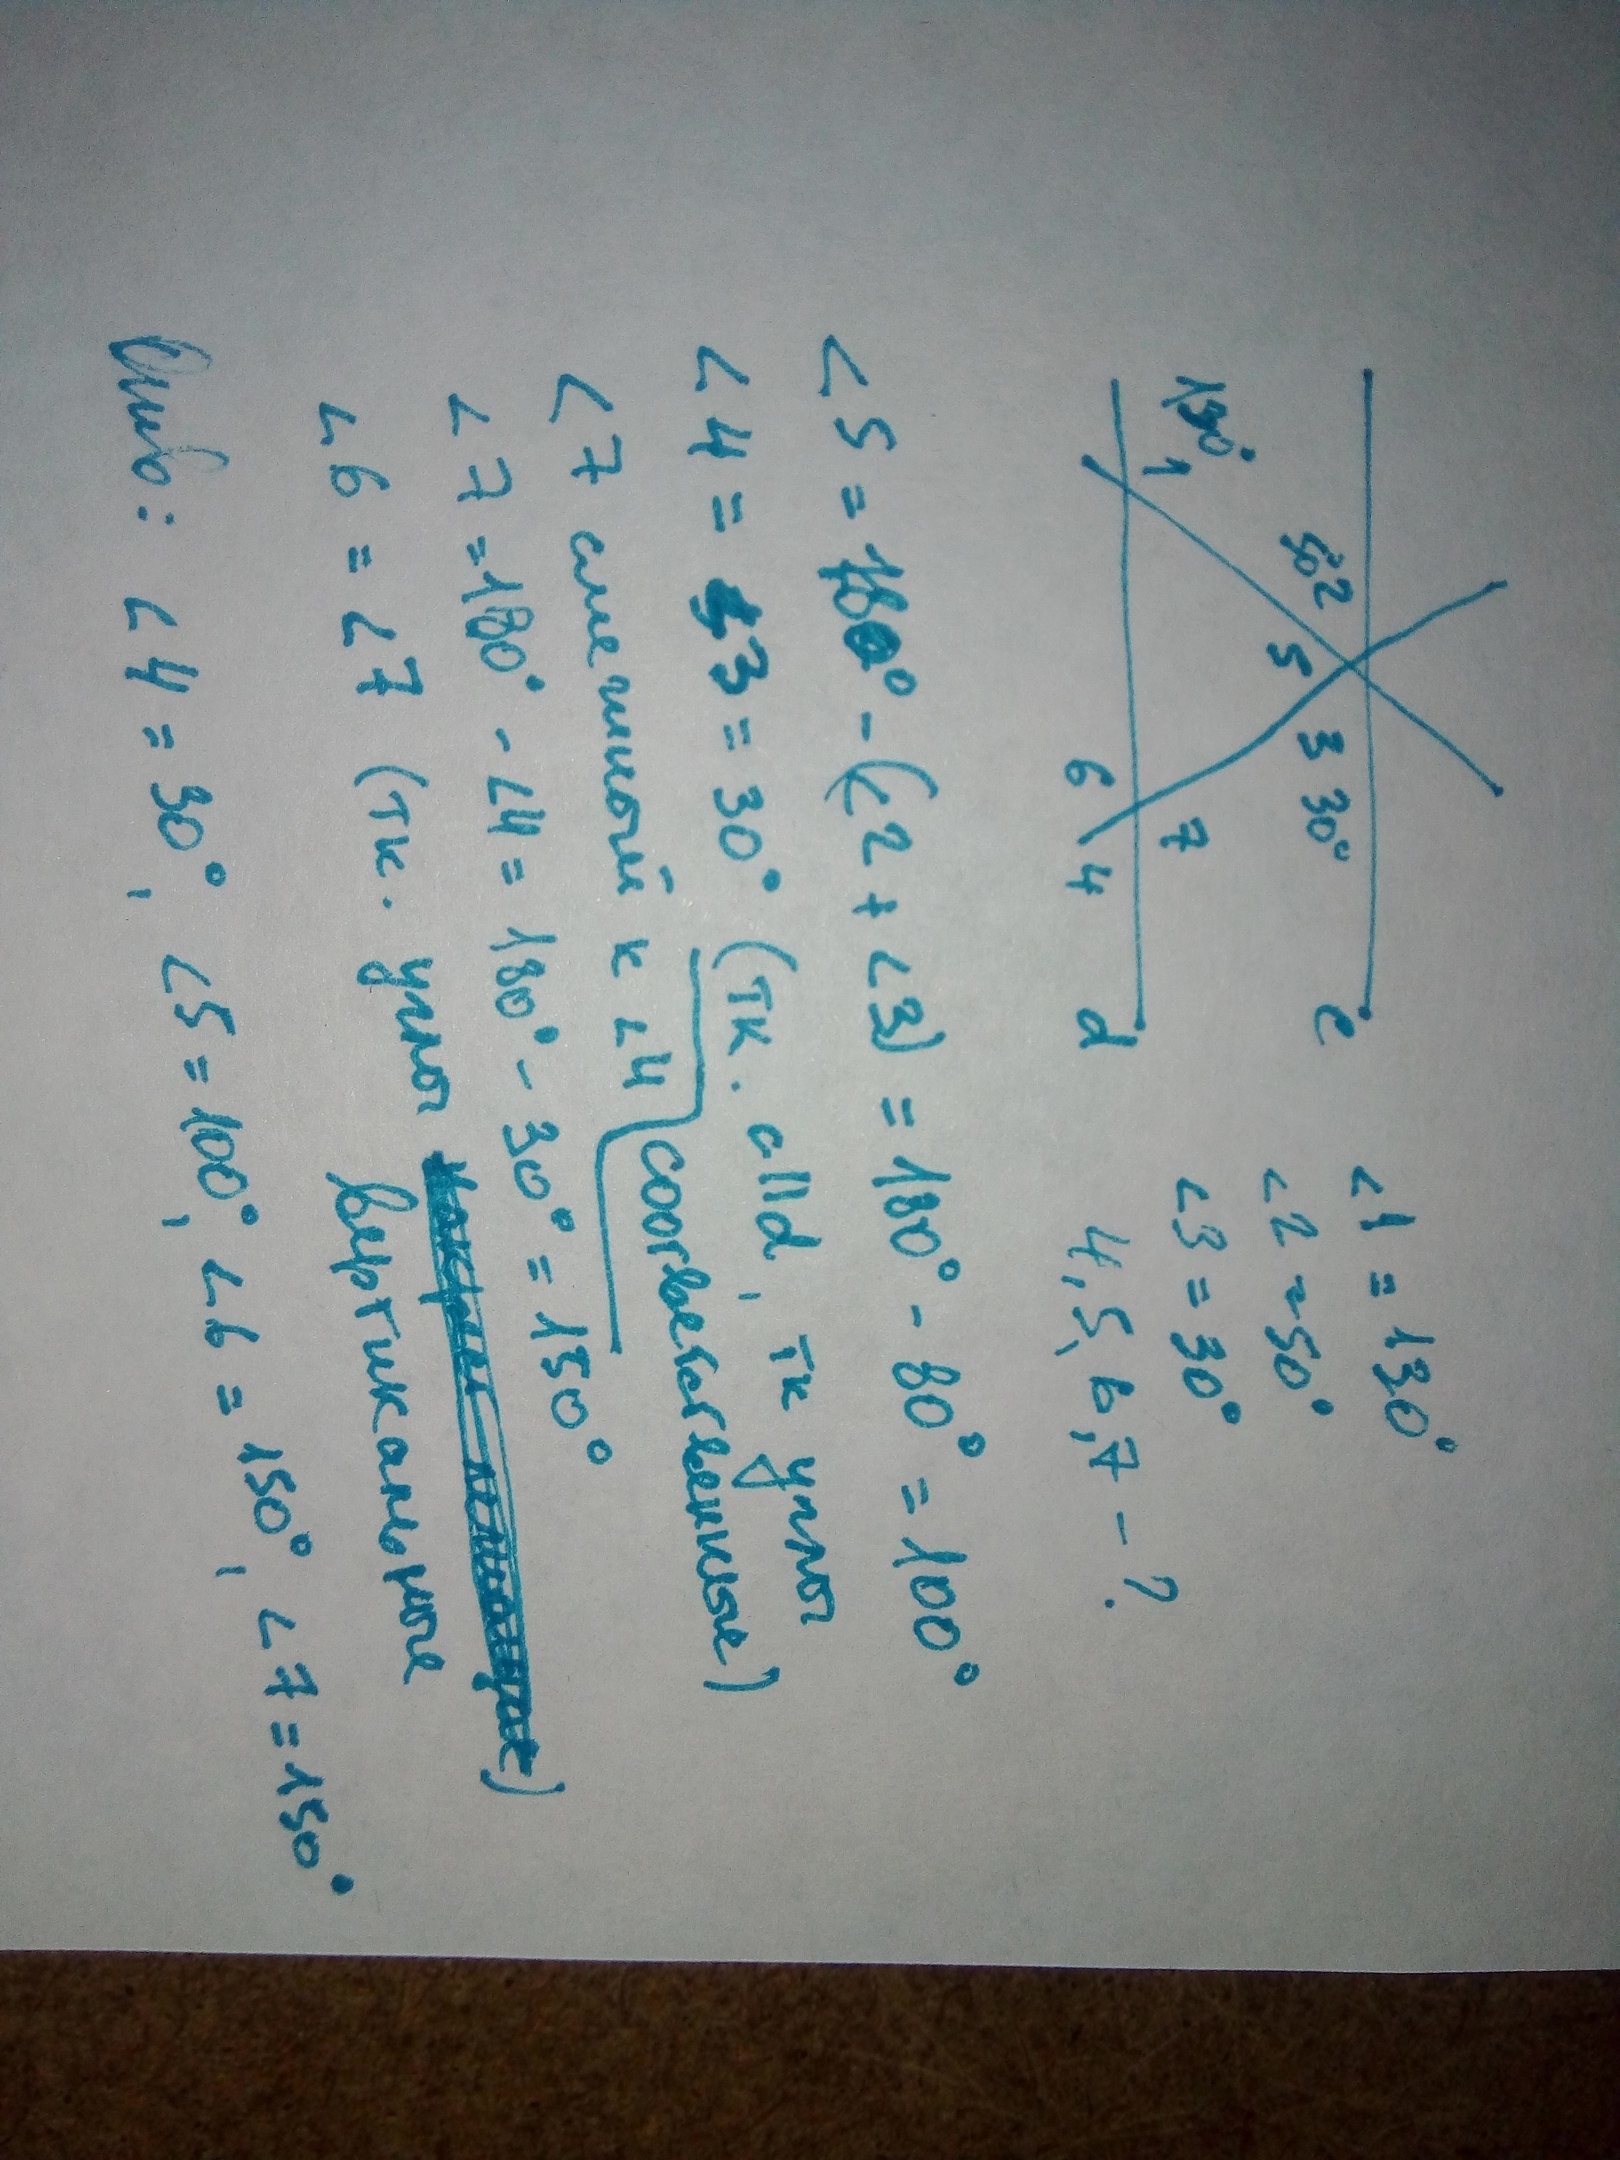 130°
1
50 2
5
3 30°
c
6
7
4
d
∠1 = 130°
∠2 = 50°
∠3 = 30°
4, 5, 6, 7 - ?
∠5 = 180° - (∠2 + ∠3) = 180° - 80° = 100°
∠4 = ∠3 = 30° (тк. c||d, тк углы
соответственные)
∠7 смежный к ∠4
∠7 = 180° - ∠4 = 180° - 30° = 150°
∠6 = ∠7 (тк. углы
вертикальные)
Ответ: ∠4 = 30°, ∠5 = 100°, ∠6 = 150°, ∠7 = 150°